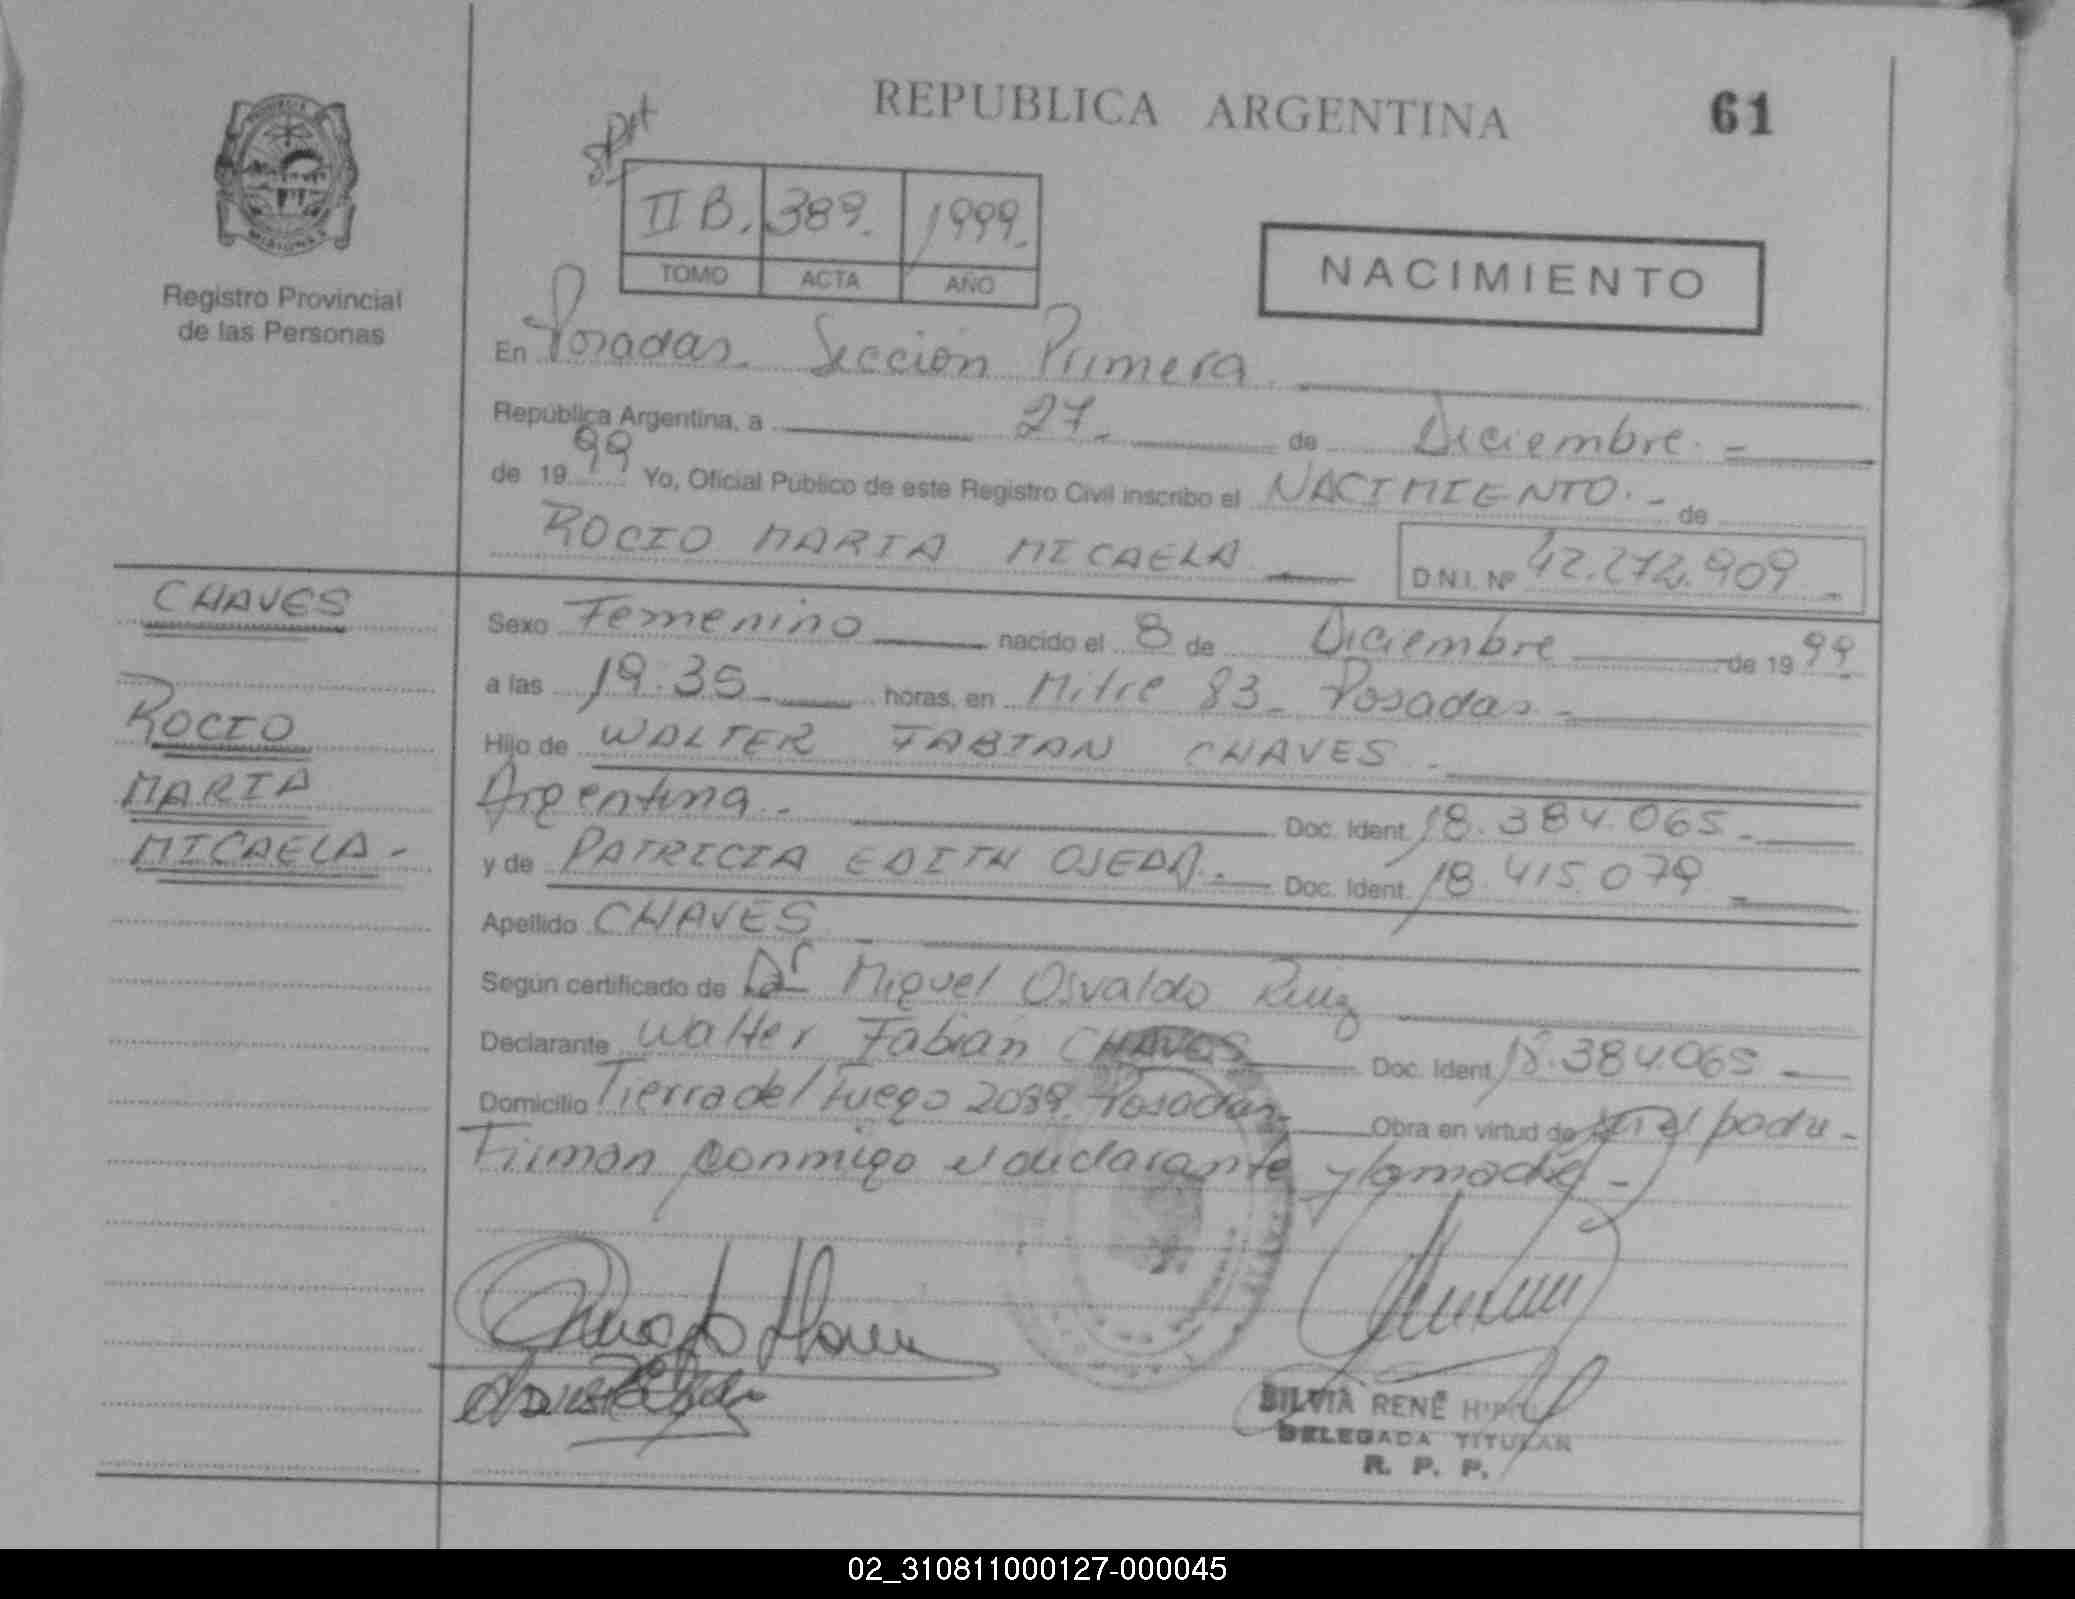 REPUBLICA ARGENTINA
61
II B. 389. 1999.
TOMO ACTA AÑO
NACIMIENTO
Registro Provincial
de las Personas
En Posadas. Sección Primera
República Argentina, a 27 de Diciembre. -
de 1999 Yo, Oficial Público de este Registro Civil inscribo el NACIMIENTO. - de
ROCIO MARIA MICAELA D.N.I. Nº 42.272.909
CHAVES
ROCIO
MARIA
MICAELA -
Sexo Femenino nacido el 8 de Diciembre de 1999
a las 19.35 horas, en Mitre 83 - Posadas -
Hijo de WALTER FABIAN CHAVES -
Argentina - Doc. Ident. 18.384.065 -
y de PATRICIA EDITH OJEDA. - Doc. Ident. 18.415.079
Apellido CHAVES -
Según certificado de Dr Miguel Osvaldo Ruiz
Declarante Walter Fabián CHAVES Doc. Ident. 18.384.065 -
Domicilio Tierra del Fuego 2089. Posadas. Obra en virtud de ser el padre -
Firman conmigo el declarante y la madre -
SILVIA RENÉ
DELEGADA TITULAR
R. P. P.
02_310811000127-000045